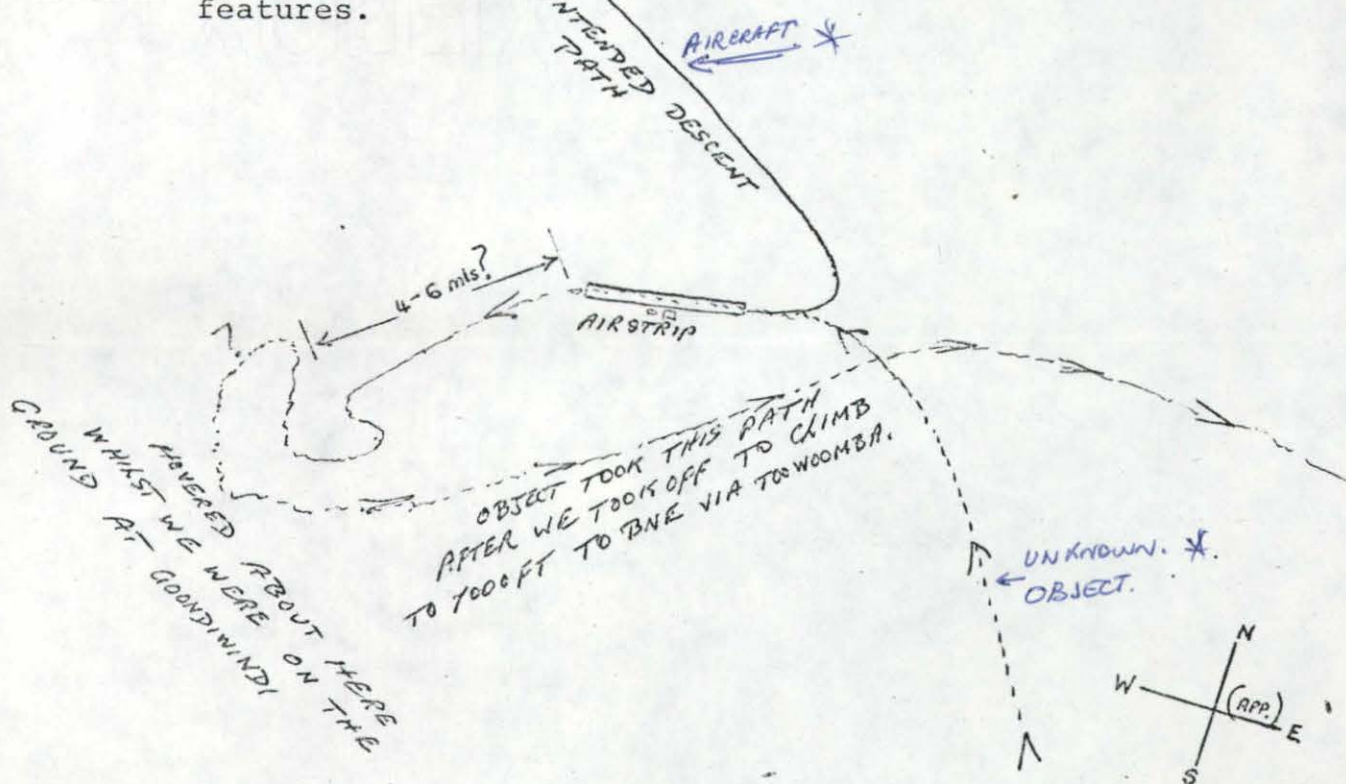 features.
NTENDED DESCENT
PATH
AIRCRAFT *
4-6 mls?
AIRSTRIP
OBJECT TOOK THIS PATH
AFTER WE TOOK OFF TO CLIMB
TO 7000FT TO BNE VIA TOOWOOMBA.
HOVERED ABOUT HERE
WHILST WE WERE ON THE
GROUND AT GOONDIWINDI
UNKNOWN. *.
OBJECT.
N
W
(APP.)
E
S